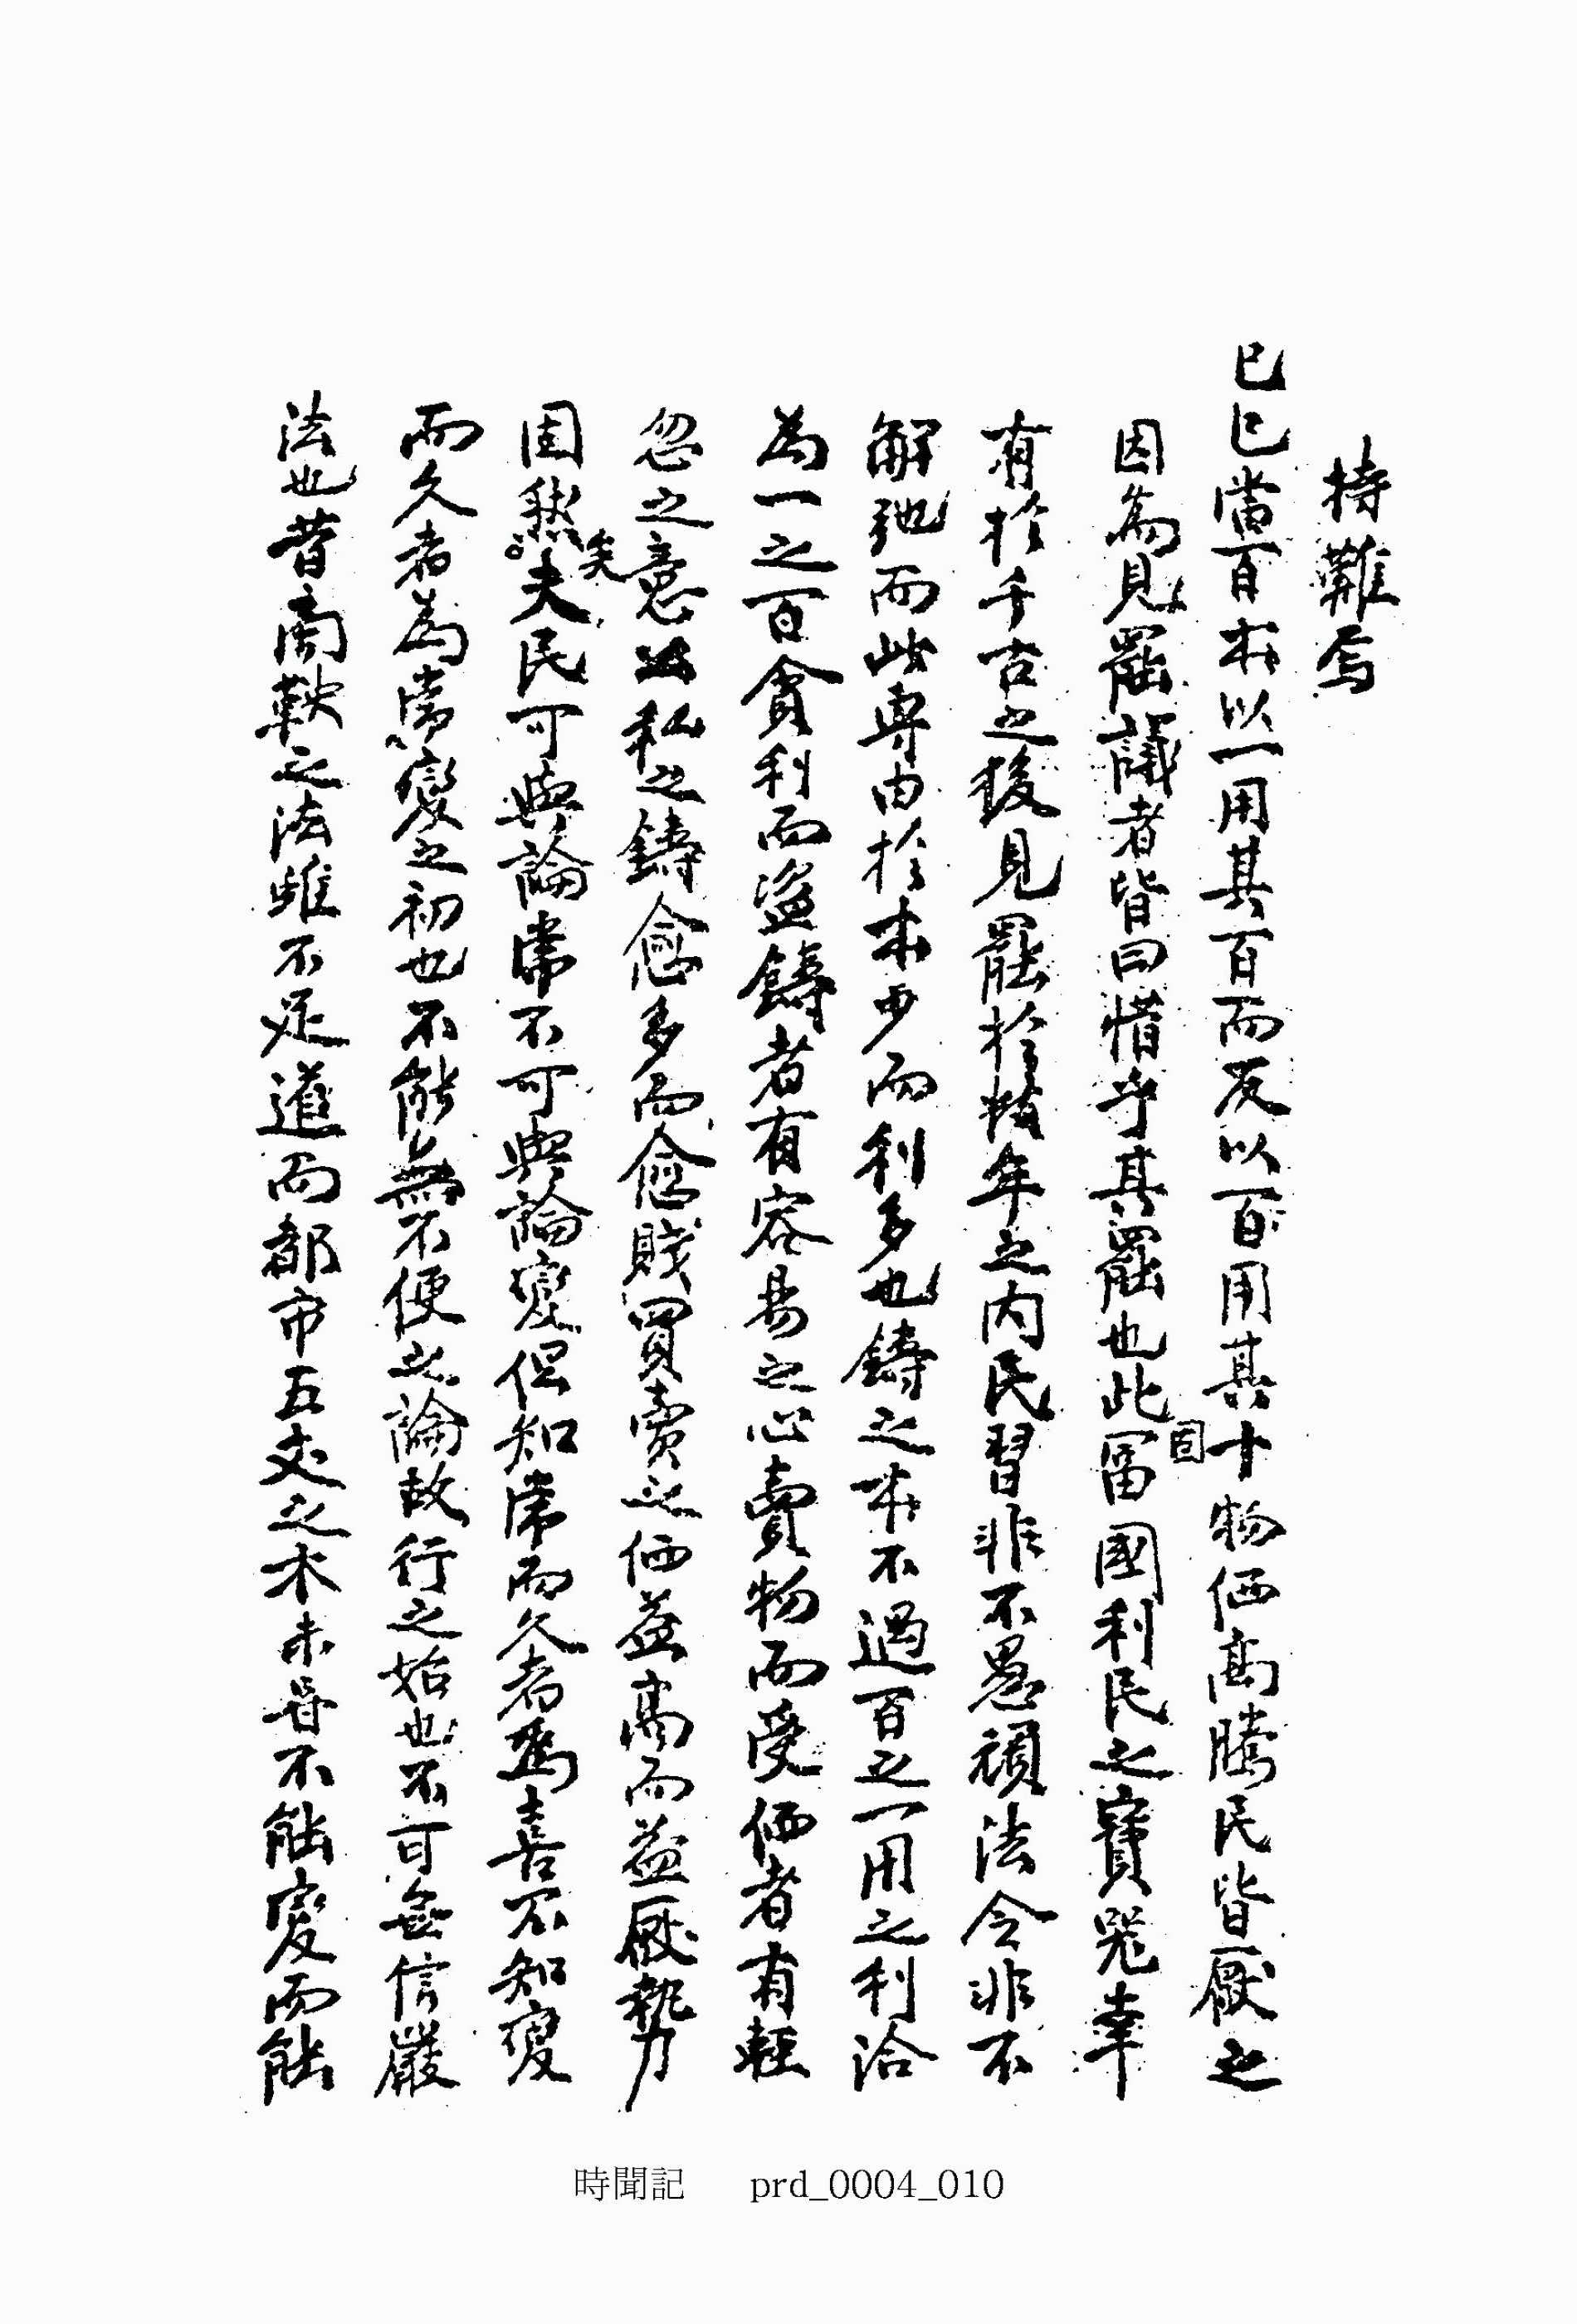 持難焉
已巳當百本以一用其百而反以百用其十物価高騰民皆厭之
因為見罷議者皆曰惜乎其罷也此固冨國利民之寶器幸
有於千古之後見罷於數年之內民習非不愚頑法令非不
解弛而此專由於本少而利多也鑄之本不過百之一用之利洽
為一之百貪利而盜鑄者有容易之心賣物而受価者有輕
忽之意公私之鑄愈多而愈賤買賣之価益高而益厭勢
固然矣夫民可與論常不可與論變但知常而久者為喜不知變
而久者為常變之初也不能無不便之論故行之始也不可無信嚴
法也昔商鞅之法雖不足道而都市五丈之木未甞不能變而能
時聞記 prd_0004_010